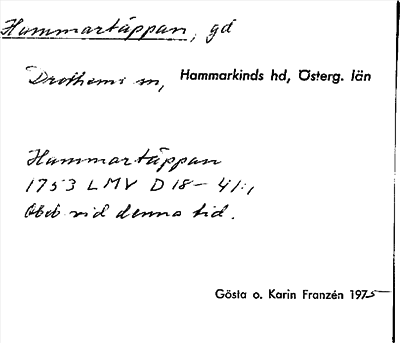 Hammartäppan, gd
Drothems sn, Hammarkinds hd, Österg. län
Hammartäppan
1753 LMV D 18– 41:1
Obeb. vid denna tid.
Gösta o. Karin Franzén 1975